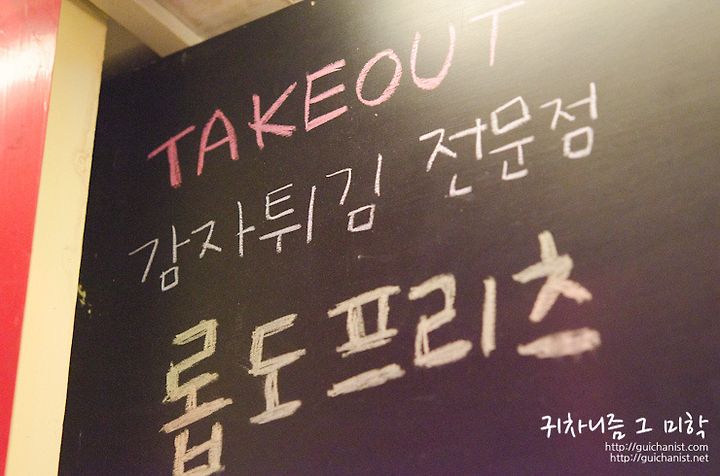 TAKEOUT
감자튀김 전문점
롭도프리츠
귀차니즘 그 미학
http://guichanist.com
http://guichanist.net